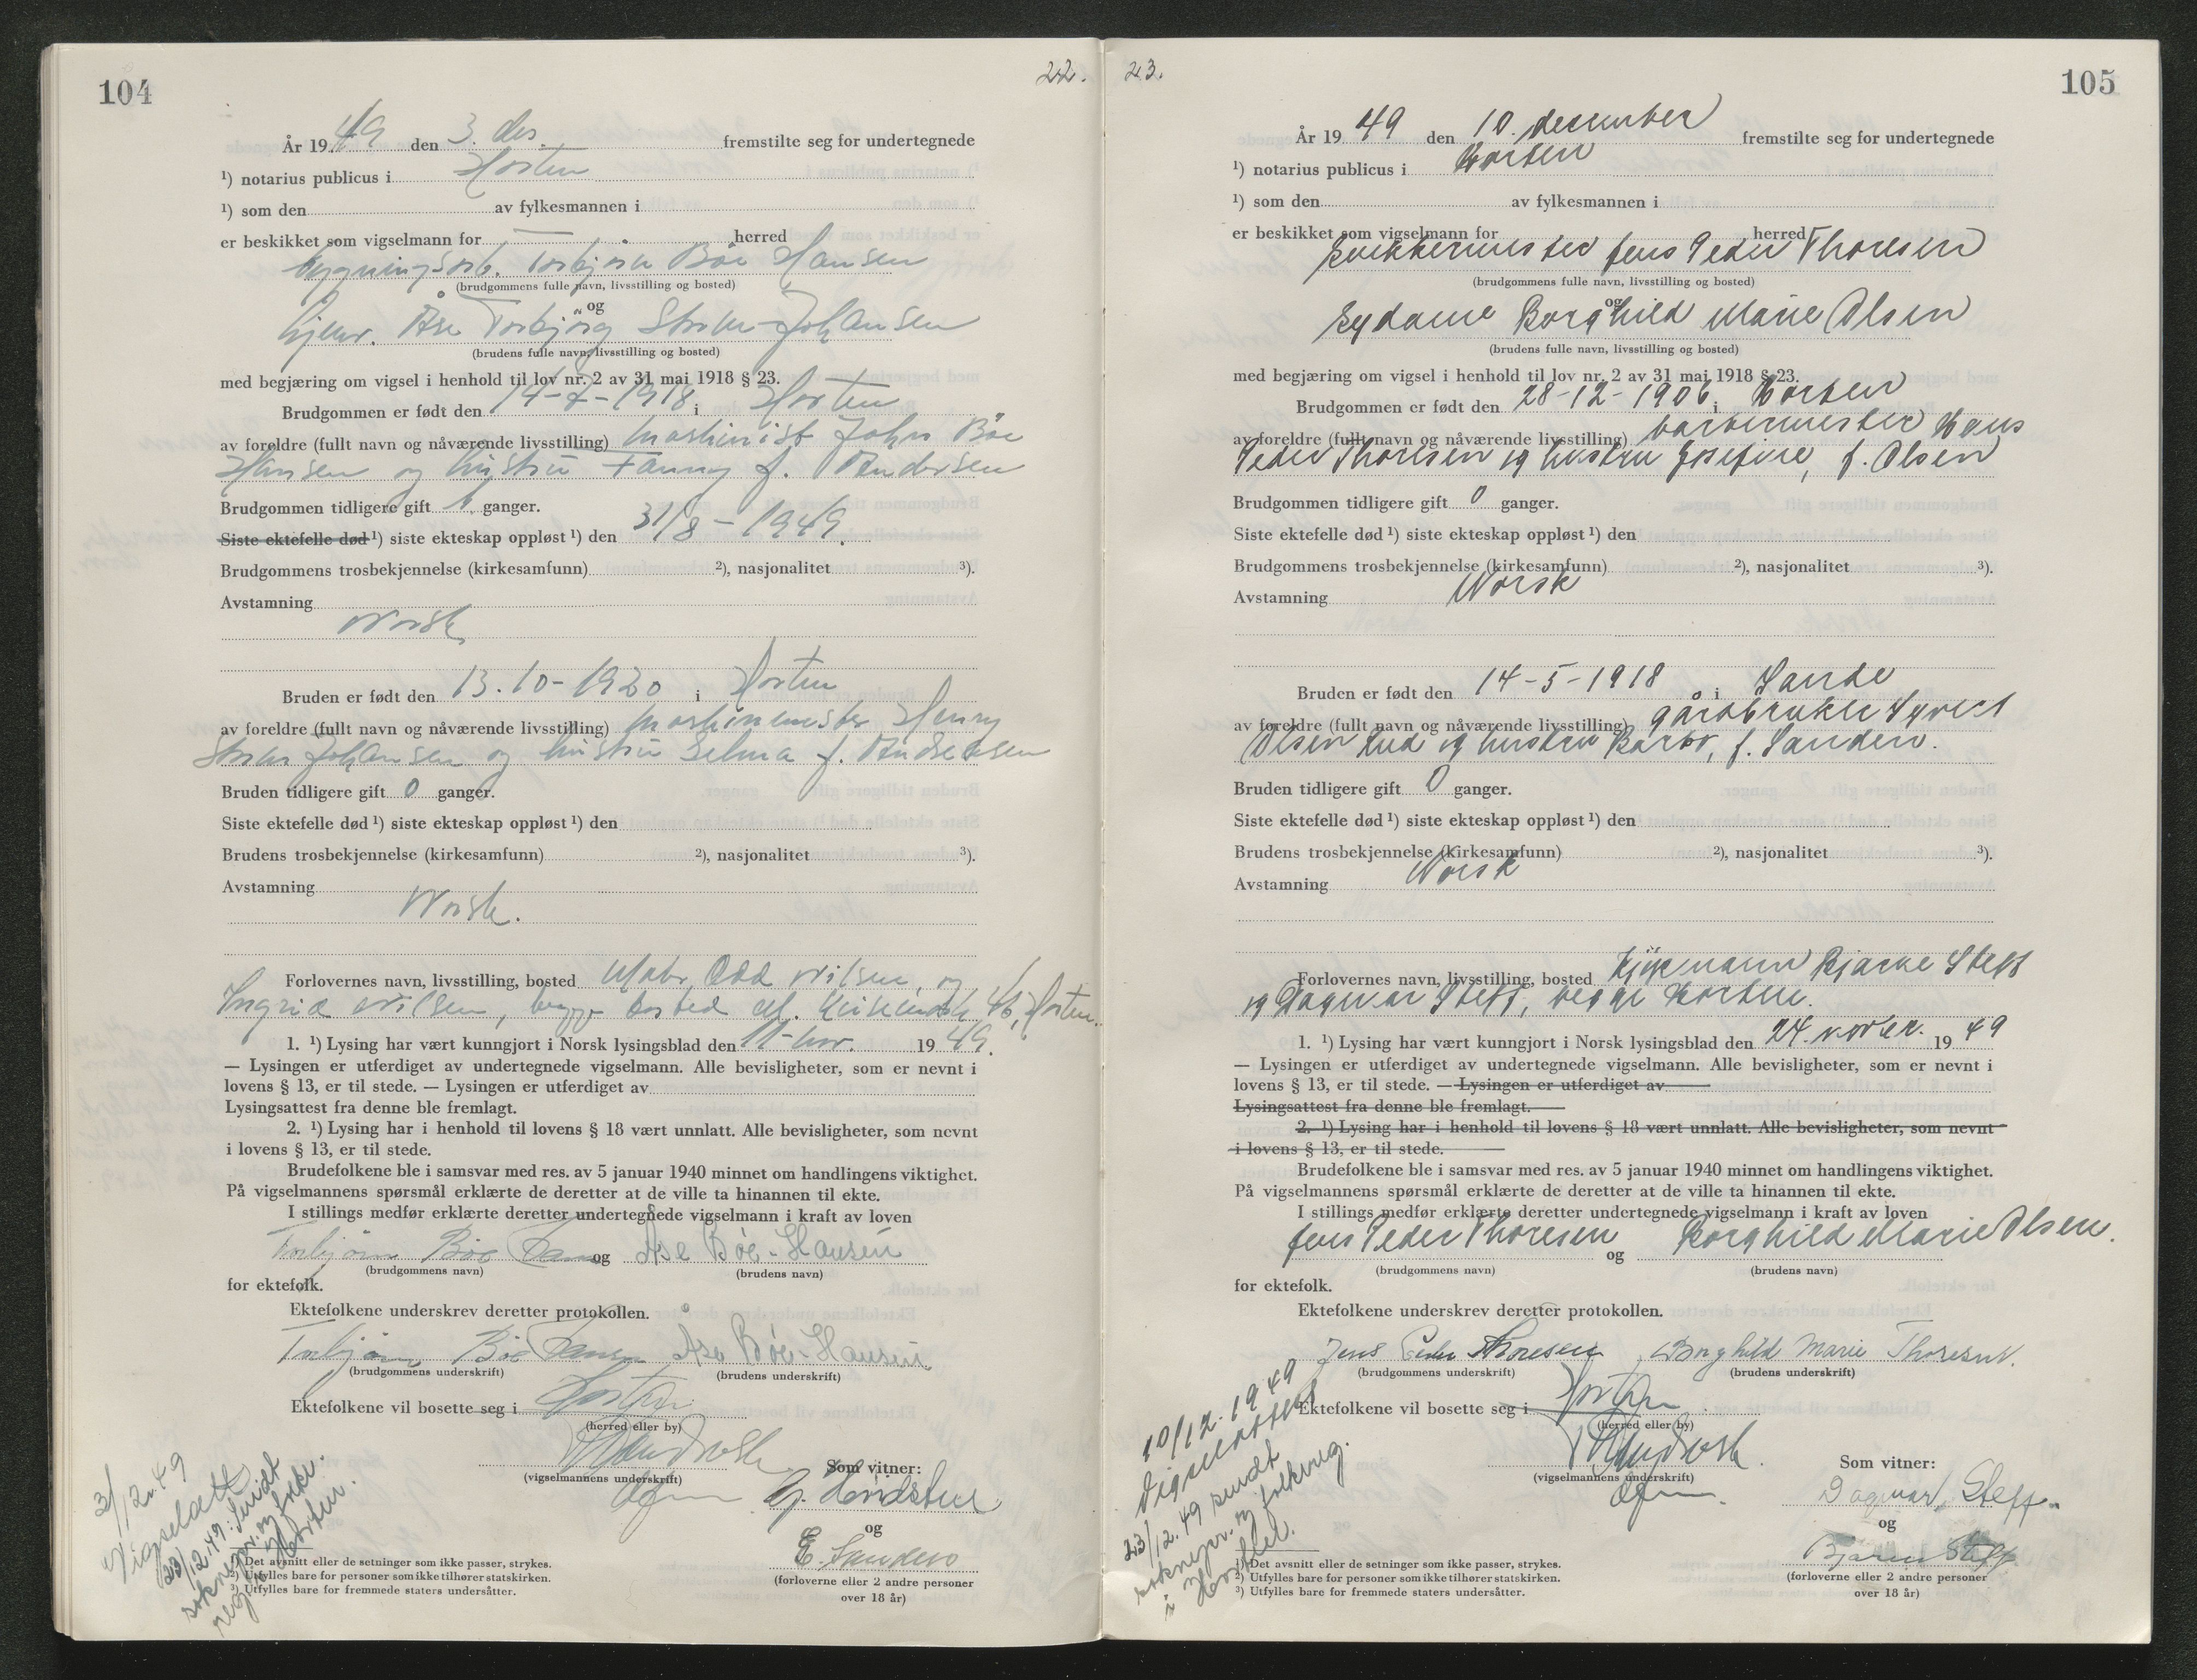 104
22.
År 1949 den 3. des. fremstilte seg for undertegnede
¹) notarius publicus i Horten
¹) som den av fylkesmannen i
er beskikket som vigselmann for herred
bygningsarb. Torbjørn Bøe Hansen
(brudgommens fulle navn, livsstilling og bosted)
og
hjemv. Åse Torbjörg Strøm-Johansen
(brudens fulle navn, livsstilling og bosted)
med begjæring om vigsel i henhold til lov nr. 2 av 31 mai 1918 § 23.
Brudgommen er født den 14-7-1918 i Horten
av foreldre (fullt navn og nåværende livsstilling) maskinist John Böe
Hansen og hustru Fanny f. Andersen
Brudgommen tidligere gift 1 ganger.
Siste ektefelle død ¹) siste ekteskap oppløst ¹) den 31/8-1949.
Brudgommens trosbekjennelse (kirkesamfunn) ²), nasjonalitet ³).
Avstamning
Norsk
Bruden er født den 13.10-1920 i Horten
av foreldre (fullt navn og nåværende livsstilling) maskinmester Henry
Strøm Johansen og hustru Selma f. Andersen
Bruden tidligere gift 0 ganger.
Siste ektefelle død ¹) siste ekteskap oppløst ¹) den
Brudens trosbekjennelse (kirkesamfunn) ²), nasjonalitet ³).
Avstamning
Norsk.
Forlovernes navn, livsstilling, bosted Odd Nilsen, og
Ingrid Nilsen, begge bosted 46, Horten.
1. ¹) Lysing har vært kunngjort i Norsk lysingsblad den 11-nov. 1949.
— Lysingen er utferdiget av undertegnede vigselmann. Alle bevisligheter, som er nevnt i
lovens § 13, er til stede. — Lysingen er utferdiget av
Lysingsattest fra denne ble fremlagt.
2. ¹) Lysing har i henhold til lovens § 18 vært unnlatt. Alle bevisligheter, som nevnt
i lovens § 13, er til stede.
Brudefolkene ble i samsvar med res. av 5 januar 1940 minnet om handlingens viktighet.
På vigselmannens spørsmål erklærte de deretter at de ville ta hinannen til ekte.
I stillings medfør erklærte deretter undertegnede vigselmann i kraft av loven
Torbjørn Bøe Hansen og Åse Bøe-Hansen
(brudgommens navn) (brudens navn)
for ektefolk.
Ektefolkene underskrev deretter protokollen.
Torbjørn Bøe Hansen Åse Bøe-Hansen
(brudgommens underskrift) (brudens underskrift)
Ektefolkene vil bosette seg i Horten
(herred eller by)
(vigselmannens underskrift)
Som vitner:
og
(forloverne eller 2 andre personer
over 18 år)
3/12.49
Vigselatt.
23/12.49: Sendt
soknepr. og folkr.
reg. i Horten.
¹) Det avsnitt eller de setninger som ikke passer, strykes.
²) Utfylles bare for personer som ikke tilhører statskirken.
³) Utfylles bare for fremmede staters undersåtter.
23.
105
År 1949 den 10. desember fremstilte seg for undertegnede
¹) notarius publicus i Horten
¹) som den av fylkesmannen i
er beskikket som vigselmann for herred
Snekkermester Jens Peder Thoresen
(brudgommens fulle navn, livsstilling og bosted)
og
Sydame Borghild Marie Olsen
(brudens fulle navn, livsstilling og bosted)
med begjæring om vigsel i henhold til lov nr. 2 av 31 mai 1918 § 23.
Brudgommen er født den 28-12-1906 i Horten
av foreldre (fullt navn og nåværende livsstilling) barbermester Hans
Peder Thoresen og hustru Josefine, f. Olsen
Brudgommen tidligere gift 0 ganger.
Siste ektefelle død ¹) siste ekteskap oppløst ¹) den
Brudgommens trosbekjennelse (kirkesamfunn) ²), nasjonalitet ³).
Avstamning Norsk
Bruden er født den 14-5-1918 i Sande
av foreldre (fullt navn og nåværende livsstilling) gårdbruker Syvert
Olsen Rud og hustru Barbo, f. Sanden.
Bruden tidligere gift 0 ganger.
Siste ektefelle død ¹) siste ekteskap oppløst ¹) den
Brudens trosbekjennelse (kirkesamfunn) ²), nasjonalitet ³).
Avstamning Norsk
Forlovernes navn, livsstilling, bosted Bjarne Steff
og Dagmar Steff, begge Horten.
1. ¹) Lysing har vært kunngjort i Norsk lysingsblad den 24. novbr. 1949
— Lysingen er utferdiget av undertegnede vigselmann. Alle bevisligheter, som er nevnt i
lovens § 13, er til stede. — Lysingen er utferdiget av
Lysingsattest fra denne ble fremlagt.
2. ¹) Lysing har i henhold til lovens § 18 vært unnlatt. Alle bevisligheter, som nevnt
i lovens § 13, er til stede.
Brudefolkene ble i samsvar med res. av 5 januar 1940 minnet om handlingens viktighet.
På vigselmannens spørsmål erklærte de deretter at de ville ta hinannen til ekte.
I stillings medfør erklærte deretter undertegnede vigselmann i kraft av loven
Jens Peder Thoresen og Borghild Marie Olsen.
(brudgommens navn) (brudens navn)
for ektefolk.
Ektefolkene underskrev deretter protokollen.
Jens Peder Thoresen Borghild Marie Thoresen.
(brudgommens underskrift) (brudens underskrift)
Ektefolkene vil bosette seg i Horten
(herred eller by)
(vigselmannens underskrift)
Som vitner:
Dagmar Steff.
og
Bjarne Steff
(forloverne eller 2 andre personer
over 18 år)
10/12-1949
Vigselattest
23/12.49 sendt
soknepr. og folkereg.
i Horten.
¹) Det avsnitt eller de setninger som ikke passer, strykes.
²) Utfylles bare for personer som ikke tilhører statskirken.
³) Utfylles bare for fremmede staters undersåtter.